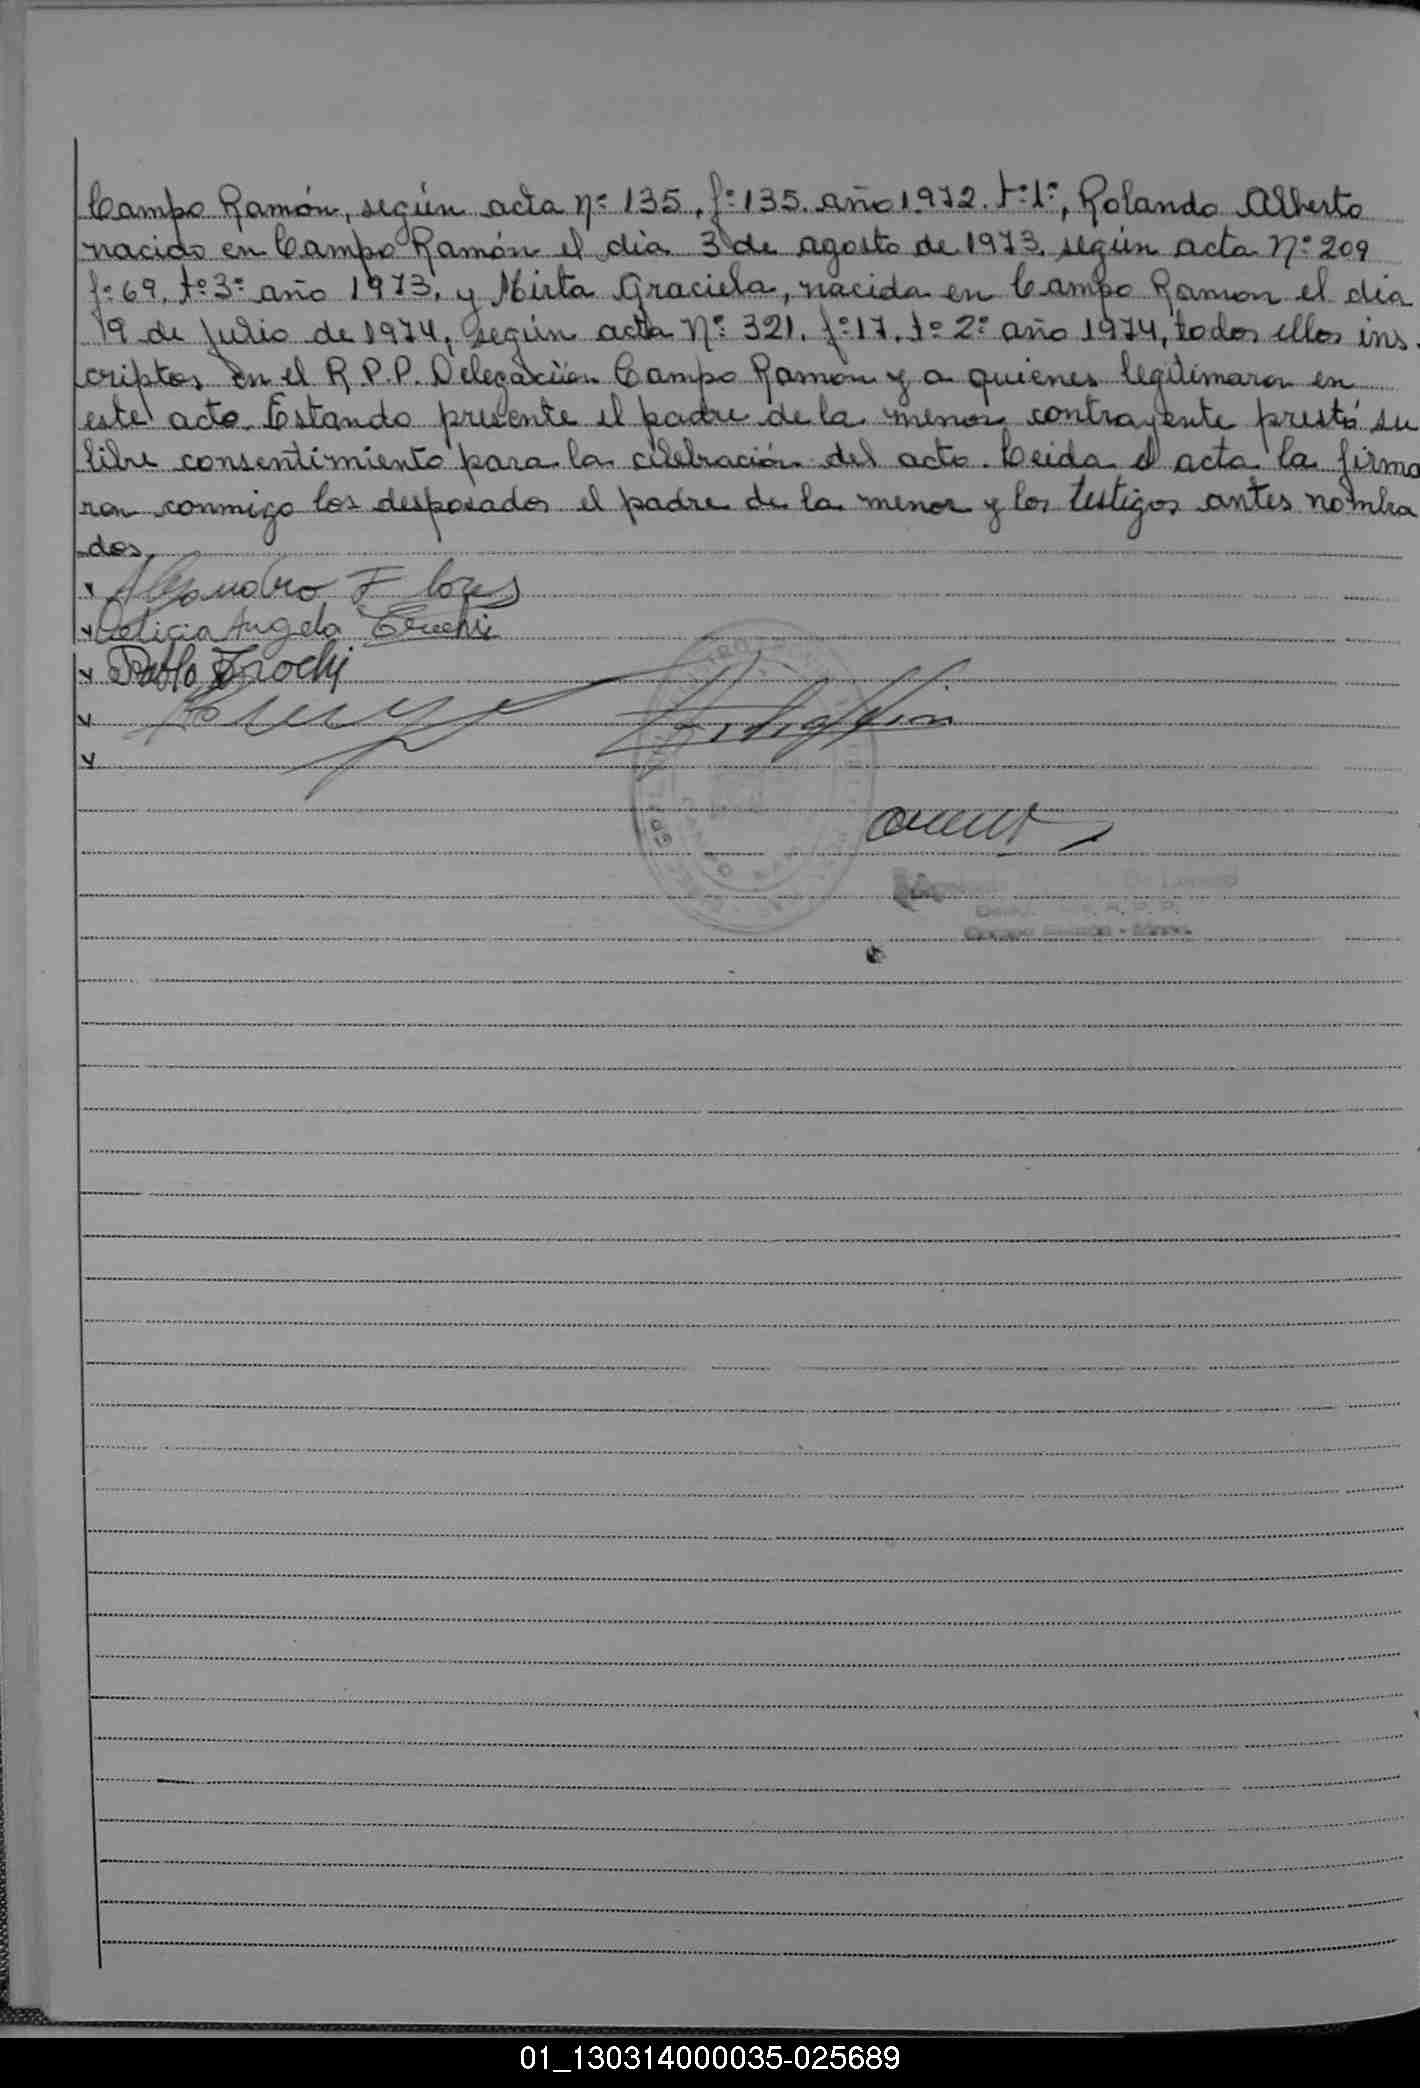 Campo Ramón, según acta nº 135, fº 135. año 1972. tº 1º, Rolando Alberto
nacido en Campo Ramón el dia 3 de agosto de 1973. según acta Nº 209
fº 69. tº 3º año 1973. y Mirta Graciela, nacida en Campo Ramon el dia
19 de Julio de 1974, según acta Nº 321. fº 17. tº 2º año 1974, todos ellos ins-
criptos en el R.P.P. Delegación Campo Ramon y a quienes legitimaron en
este acto. Estando presente el padre de la menor contrayente prestó su
libre consentimiento para la celebración del acto. Leida el acta la firma
ron conmigo los desposados el padre de la menor y los testigos antes nombra
dos.
Alejandro Flores
Leticia Angela
Pablo
01_130314000035-025689